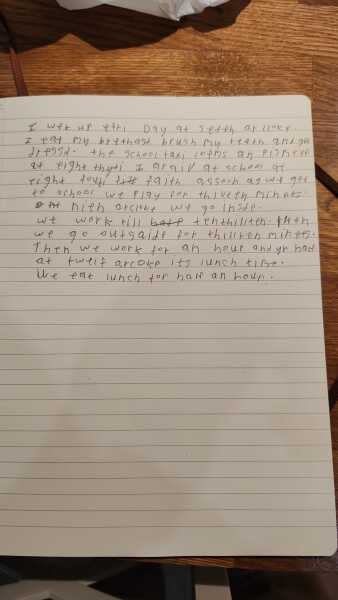 I wek up ethi Day at seth arlokr.
I eat my brekhast brush my teath and get
dressd. the school taxi coms an
at eight I araiv at school at
eight faith assoon as we get
to school we play for thiveth minuts
nith arcloke we go insde.
we work till tenthilten then
we go outsaide for thilreh minets.
Then we work for an hour and yn half
at twelf arcoke its lunch time.
We eat lunch for half an hour.